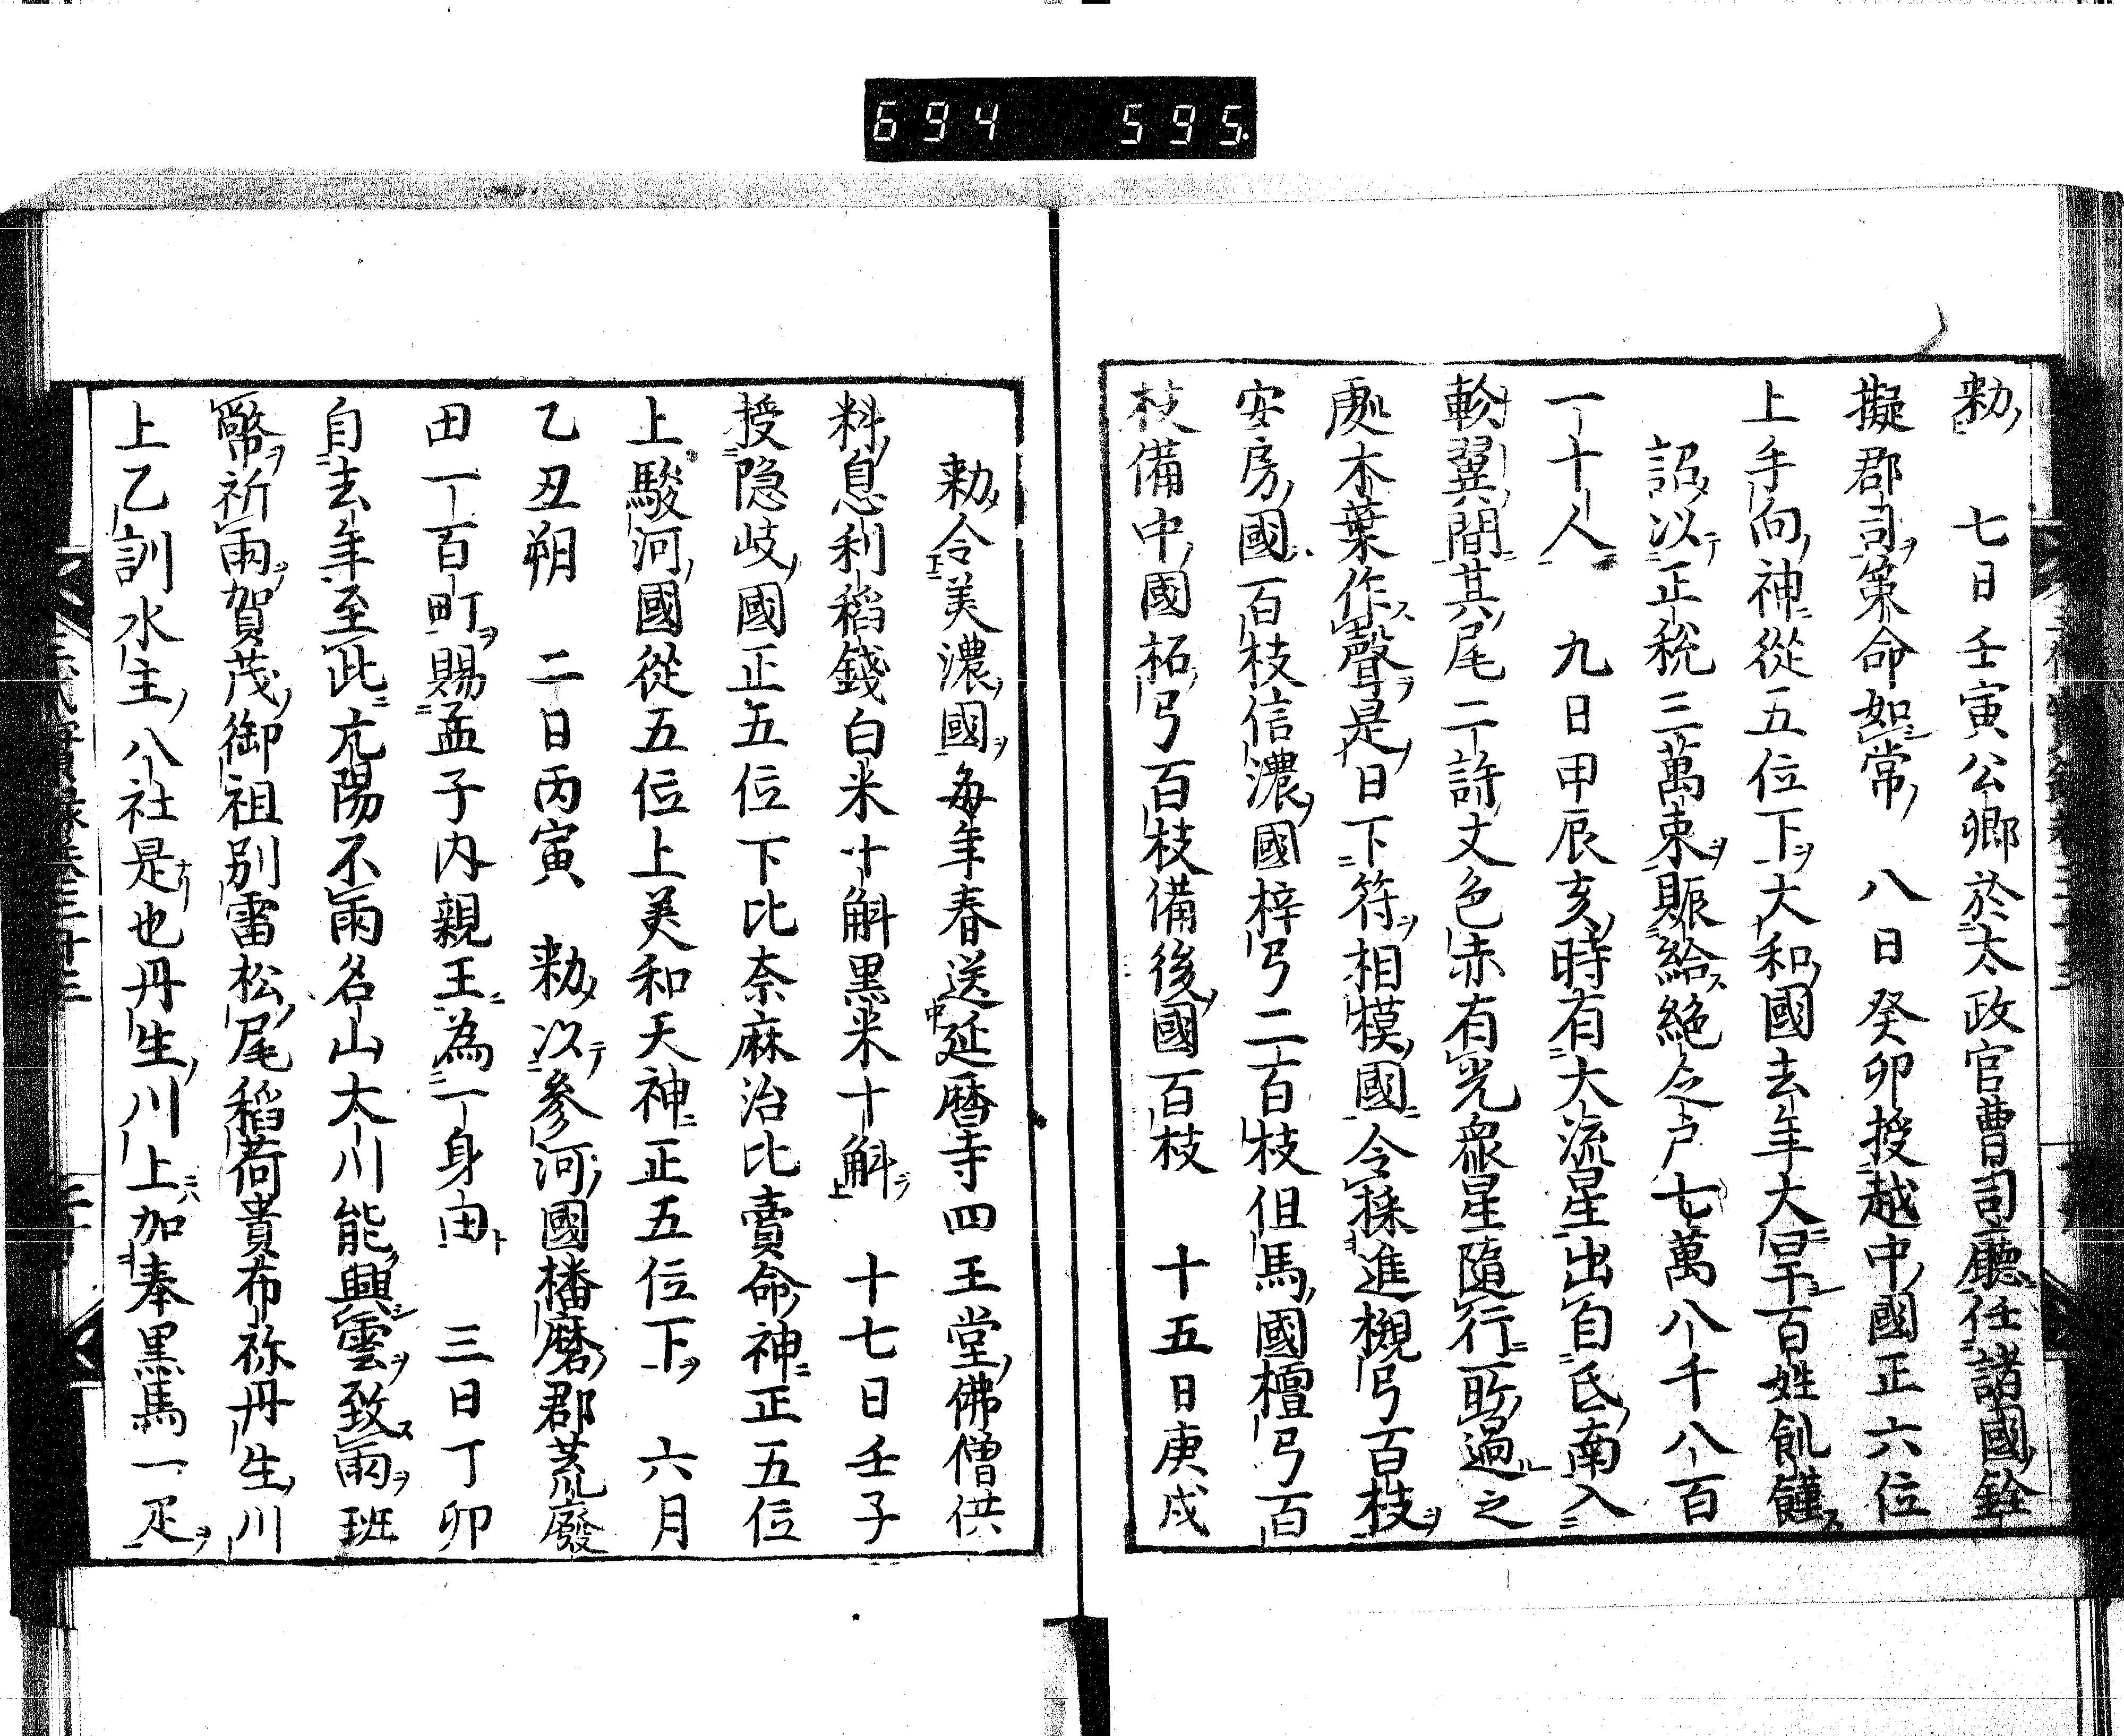 694 595.
勑　七日壬寅公卿於太政官曹司廳任諸國銓
擬郡司策命如常　八日癸卯授越中國正六位
上手向神從五位下大和國去年大旱百姓飢饉
詔以正稅三萬束賑給絶乏戶七萬八千八百
一十人　九日甲辰亥時有大流星出自氐南入
軫翼間其尾二許丈色赤有光衆星隨行所過之
處木葉作聲是日下符相模國令採進槻弓百枝
安房國百枝信濃國梓弓二百枝但馬國檀弓百
枝備中國柘弓百枝備後國百枝　十五日庚戌
勑令美濃國毎年春送延暦寺四王堂佛僧供
料息利稻錢白米十斛黒米十斛　十七日壬子
授隐岐國正五位下比奈麻治比賣命神正五位
上駿河國從五位上美和天神正五位下　六月
乙丑朔　二日丙寅　勑以參河國播磨郡荒廢
田一百町賜孟子内親王為一身田　三日丁卯
自去年至此亢陽不雨名山大川能興雲致雨班
幣祈雨賀茂御祖別雷松尾稻荷貴布祢丹生川
上乙訓水主八社是也丹生川上加奉黒馬一疋